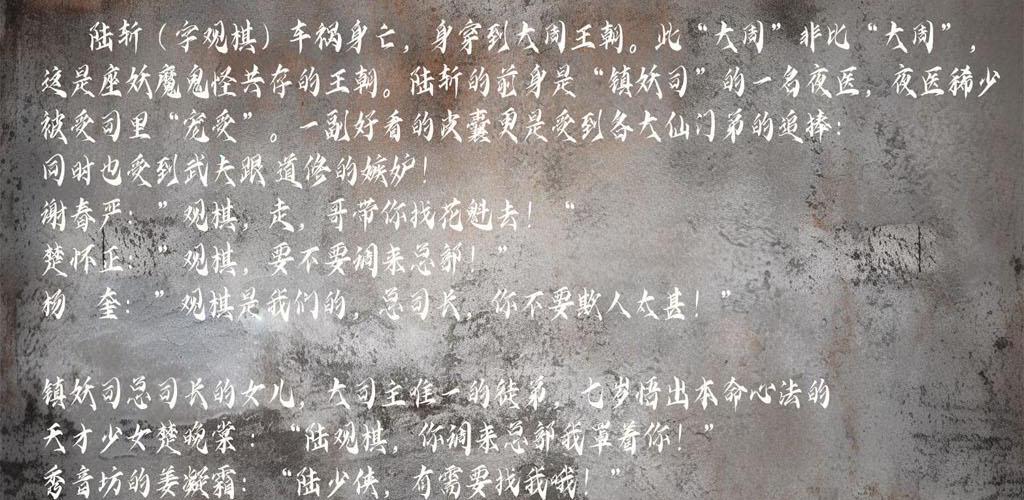 陆斩（字观棋）车祸身亡，身穿到大周王朝。此“大周”非比“大周”，
这是座妖魔鬼怪共存的王朝。陆斩的前身是“镇妖司”的一名夜医，夜医稀少
被受司里“宠爱”。一副好看的皮囊更是受到各大仙门弟的追捧：
同时也受到武夫跟道修的嫉妒！
谢春严：”观棋，走，哥带你找花魁去！“
楚怀正：”观棋，要不要调来总部！”
杨 奎：”观棋是我们的，总司长，你不要欺人太甚！”
镇妖司总司长的女儿，大司主唯一的徒弟，七岁悟出本命心法的
天才少女楚晚棠：“陆观棋，你调来总部我罩着你！”
秀音坊的姜凝霜：“陆少侠，有需要找我哦！”